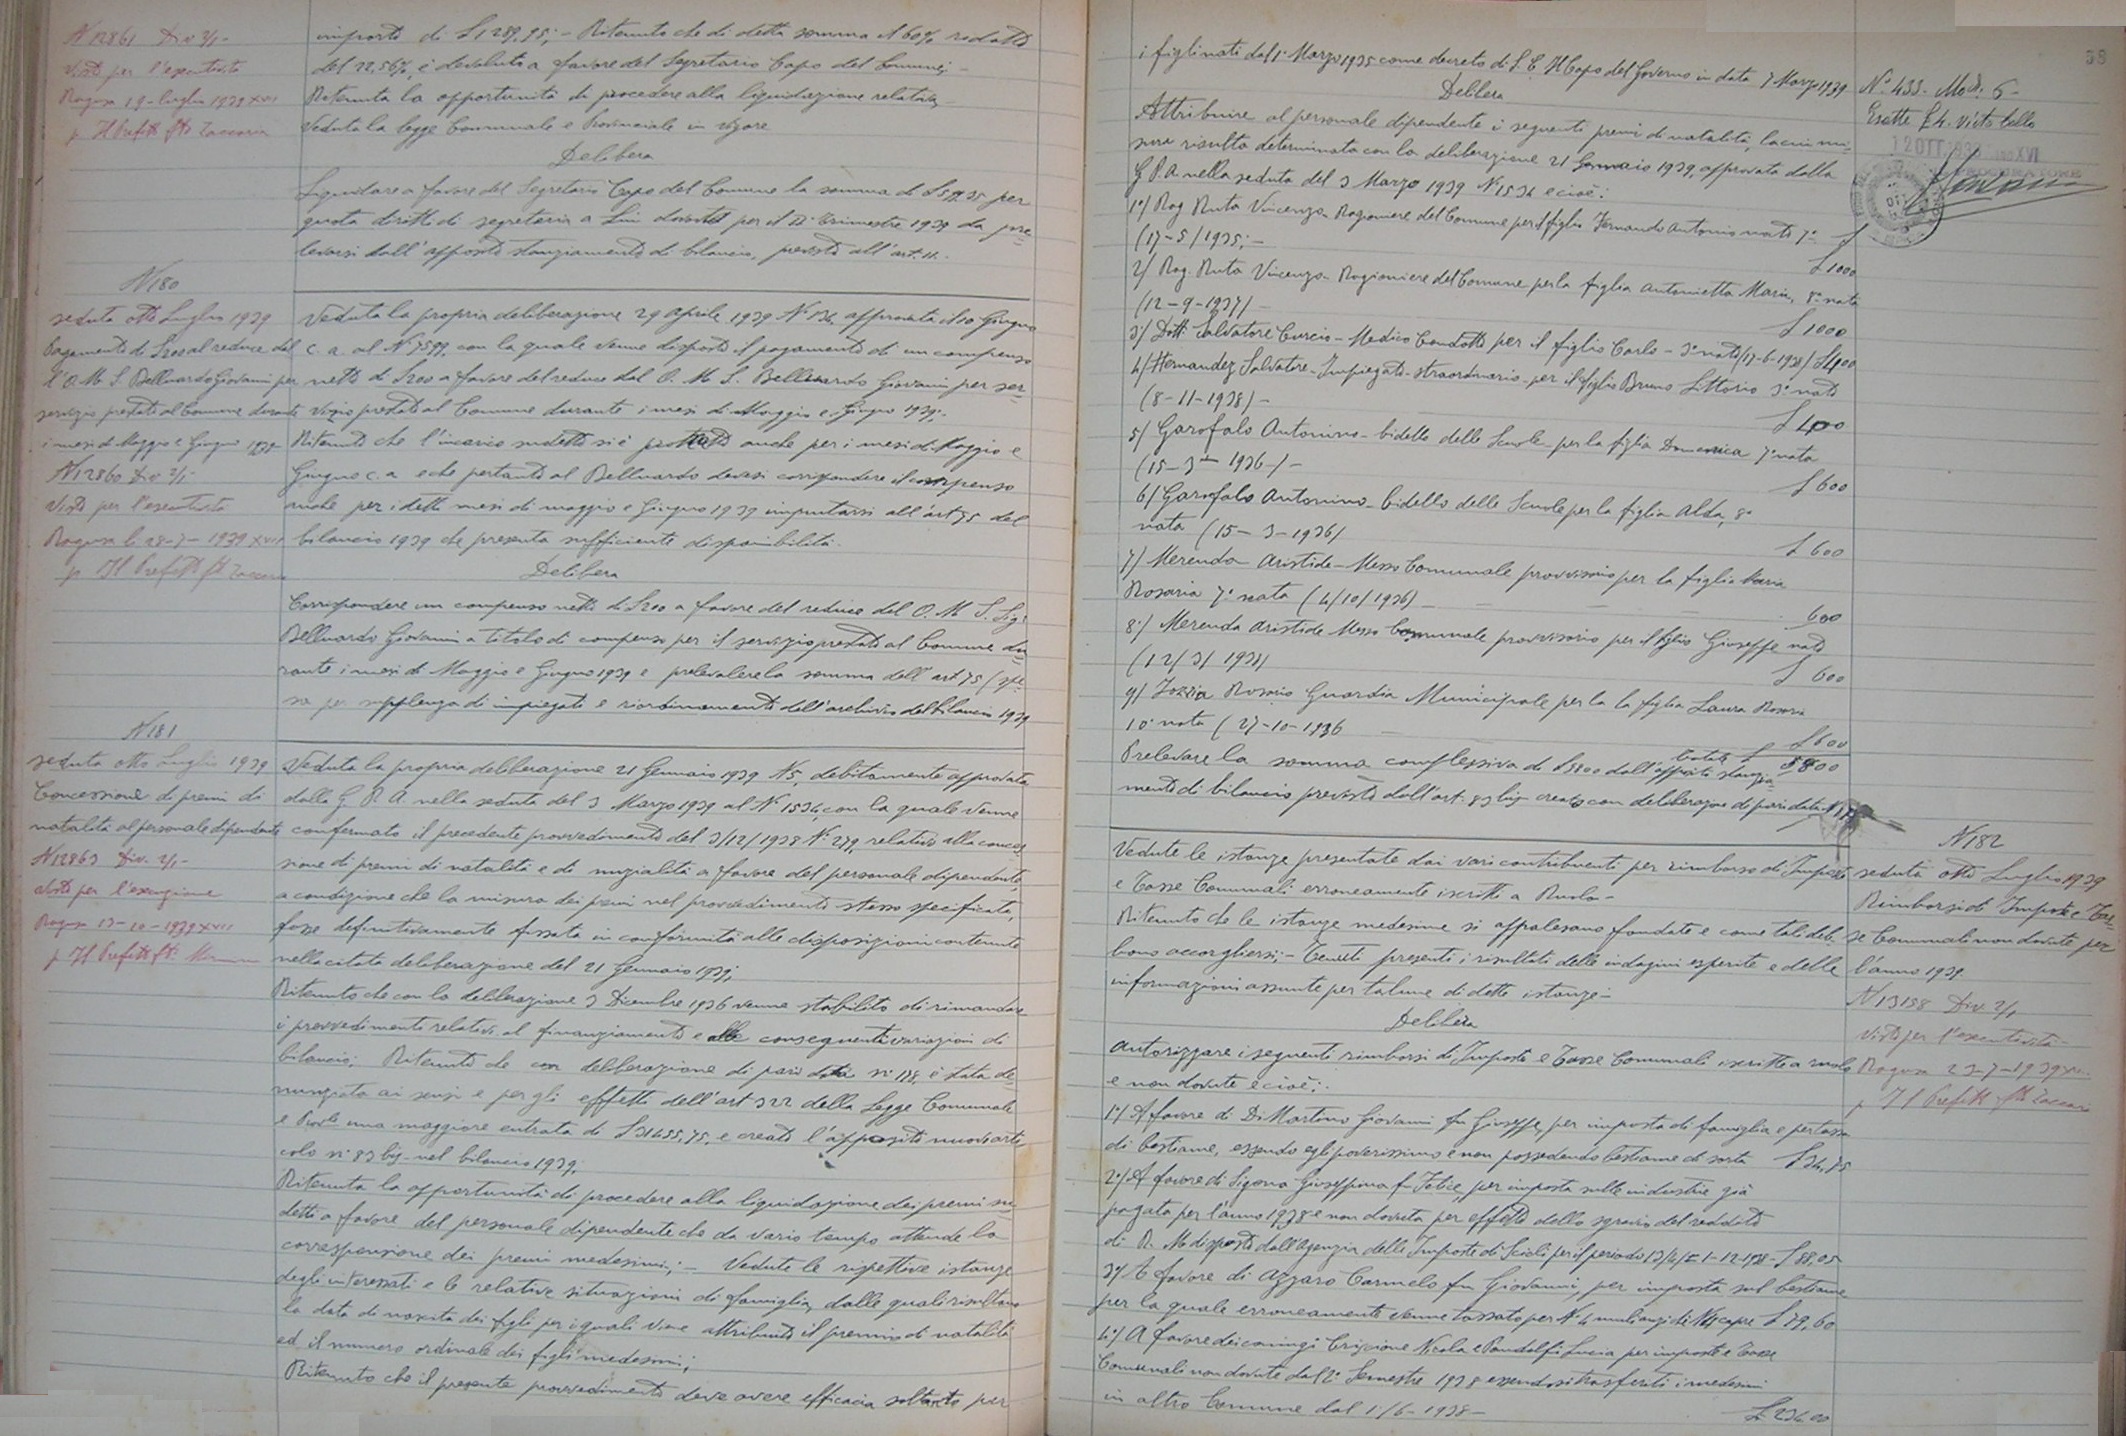 N 12861 Div 2/1-
Visto per l'esecutività
Ragusa 19-luglio 1939 XVII
p. Il Prefetto fto Zaccaria
importo di £ 1289,95; - Ritenuto che di detta somma il 60% ridotto
del 22,56%, è devoluto a favore del Segretario Capo del Comune; -
Ritenuta la opportunità di procedere alla liquidazione relativa,
Veduta la legge Comunale e Provinciale in vigore
Delibera
Liquidare a favore del Segretario Capo del Comune la somma di £ per
quota diritti di segreteria a Lui dovuta per il II° Trimestre 1939 da pre=
levarsi dall'apposito stanziamento di bilancio, previsto all'art. 11.
N 180
seduta otto Luglio 1939
Pagamento di £ 200 al reduce del
l'O. M. S. Belluardo Giovanni per
servizio prestato al Comune durante
i mesi di Maggio e Giugno 1939
N 12860 Div 2/1-
Visto per l'esecutività
Ragusa li 28-7-1939 XVII
p. Il Prefetto fto Zaccaria
Veduta la propria deliberazione 29 Aprile 1939 N 134, approvata il 10 Giugno
c. a. al N° 7599, con la quale venne disposto il pagamento di un compenso
netto di £ 200 a favore del reduce dal O. M. S. Belluardo Giovanni per ser=
vizio prestato al Comune durante i mesi di Maggio e Giugno 1939;
Ritenuto che l'incarico sudetto si è protratto anche per i mesi di Maggio e
Giugno c. a. e che pertanto al Belluardo devesi corrispondere il compenso
anche per i detti mesi di maggio e Giugno 1939 imputarsi all'art 75 del
bilancio 1939 che presenta sufficiente disponibilità.
Delibera
Corrispondere un compenso netto di £ 200 a favore del reduce dal O. M. S. Sig.
Belluardo Giovanni a titolo di compenso per il servizio prestato al Comune du=
rante i mesi di Maggio e Giugno 1939 e prelevare la somma dell'art 75 (spe=
sa per supplenza di impiegati e riordinamento dell'archivio del bilancio 1939
N 181
seduta otto Luglio 1939
Concessione di premi di
natalità al personale dipendente
N 12863 Div. 2/1-
Visto per l'esecuzione
Ragusa 13-10-1939 XVII
p. Il Prefetto fto
Veduta la propria deliberazione 21 Gennaio 1939 N 5, debitamente approvata
dalla G. P. A. nella seduta del 3 Marzo 1939 al N° 1534, con la quale venne
confermato il precedente provvedimento del 3/12/1938 N° 279, relativo alla conces=
sione di premi di natalità e di nuzialità a favore del personale dipendente,
a condizione che la misura dei premi nel provvedimento stesso specificata,
fosse definitivamente fissata in conformità alle disposizioni contenute
nella citata deliberazione del 21 Gennaio 1939;
Ritenuto che con la deliberazione 3 Dicembre 1936 venne stabilito di rimandare
i provvedimenti relativi al finanziamento e alle conseguenti variazioni di
bilancio; Ritenuto che con deliberazione di pari data n° 178, è stata de=
nunziata ai sensi e per gli effetti dell'art 322 della Legge Comunale
e Prov.le una maggiore entrata di £ 31455,75, e creato l'apposito nuovo arti
colo n° 83 bis nel bilancio 1939;
Ritenuta la opportunità di procedere alla liquidazione dei premi su=
detti a favore del personale dipendente che da vario tempo attende la
corresponsione dei premi medesimi; - Vedute le rispettive istanze
degli interessati e le relative situazioni di famiglia, dalle quali risultano
la data di nascita dei figli per i quali viene attribuito il premio di natalità
ed il numero ordinale dei figli medesimi;
Ritenuto che il presente provvedimento deve avere efficacia soltanto per
38
i figli nati dal 1° Marzo 1935 come decreto di S. E. Il Capo del Governo in data 7 Marzo 1939
Delibera
Attribuire al personale dipendente i seguenti premi di natalità la cui mi=
sura risulta determinata con la deliberazione 21 Gennaio 1939, approvata dalla
G. P. A. nella seduta del 3 Marzo 1939 N° 1534 e cioè:
1°/ Rag Ruta Vincenzo Ragioniere del Comune per il figlio Fernando Antonio nato 7°
(17-5/1935; - £ 1000
2/ Rag. Ruta Vincenzo Ragioniere del Comune per la figlia Antonietta Maria, 8° nata
(12-9-1937) - £ 1000
3/ Dott: Salvatore Curcio - Medico Condotto per il figlio Carlo - 3° nato (17-6-1938) £ 400
4/ Hernandez Salvatore - Impiegato straordinario - per il figlio Bruno Littorio 3° nato
(8-11-1938) - £ 400
5/ Garofalo Antonino - bidello delle Scuole - per la figlia Domenica 7° nata
(15-3-1936-) - £ 600
6/ Garofalo Antonino - bidello delle Scuole per la figlia Alda, 8°
nata (15-3-1936) £ 600
7/ Merenda Aristide - Messo Comunale provvisorio per la figlia Maria
Rosaria 7° nata (4/10/1936) - 600
8°/ Merenda Aristide Messo Comunale provvisorio per il figlio Giuseppe nato
(12/3/1938) £ 600
9/ Rosario Guardia Municipale per la figlia Laura Rosaria
10° nata (27-10-1936 £ 600
totale £ 5800
Prelevare la somma complessiva di £ 5800 dall'apposito stanzia=
mento di bilancio previsto dall'art. 83 bis creato con deliberazione di pari data N 178
N° 433. Mod. 6-
Esatte £ 4. visto bollo
12 OTT. 1939 Anno XVII
PROCURATORE
N 182
seduta otto Luglio 1939
Rimborsi di Imposte e Tas=
se Comunali non dovute per
l'anno 1939.
N 13158 Div. 2/1
Visto per l'esecutività
Ragusa 23-7-1939 XVII
p. Il Prefetto fto Zaccaria
Vedute le istanze presentate dai vari contribuenti per rimborso di Imposte
e Tasse Comunali erroneamente iscritte a Ruolo -
Ritenuto che le istanze medesime si appalesano fondate e come tali deb=
bono accogliersi; - Tenuti presenti i risultati delle indagini esperite e delle
informazioni assunte per talune di dette istanze -
Delibera
Autorizzare i seguenti rimborsi di Imposte e Tasse Comunali iscritte a ruolo
e non dovute e cioè:
1°/ A favore di Di Martino Giovanni fu Giuseppe, per imposta di famiglia e per tassa
di bestiame, essendo egli poverissimo e non possedendo bestiame di sorta £ 34,75
2°/ A favore di Sigona Giuseppina fu Felice, per imposta sulle industrie già
pagata per l'anno 1938 e non dovuta per effetto dello sgravio del reddito
di R. M. disposto dall'Agenzia delle Imposte di Scicli per il periodo 1-12-1938 - £ 88,05
3°/ A favore di Azzaro Carmelo fu Giovanni, per imposta sul bestiame
per la quale erroneamente venne tassato per N° 4 muli anzi di N° 4 capre £ 79,60
4°/ A favore dei coniugi Criscione Nicola e Pandolfi Lucia per imposte e Tasse
Comunali non dovute dal 2° Semestre 1938 essendosi trasferiti i medesimi
in altro Comune dal 1/6-1938 - £ 234,00